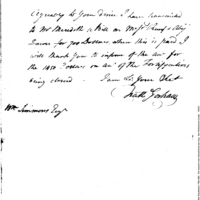 Agreeably to your desire I have transmitted
to Mr Meredith a Bill on Messrs
for 700 Dollars when this is paid I
will thank you to inform of the
the 1650 Dollars on of the Fortifications
being closed. I am Sir your Obt
Nath Gorham
Wm Simmons Esqr